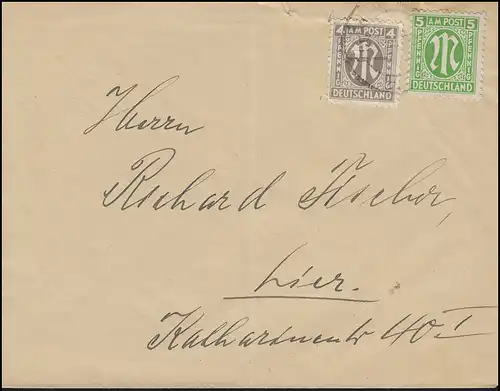 4 AM POST 4
PFENNIG PFENNIG
DEUTSCHLAND
5 AM POST 5
PFENNIG PFENNIG
DEUTSCHLAND
Herrn
Richard Fischer,
hier.
40 I